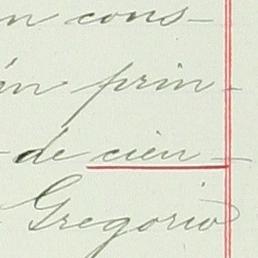 n cons-
ón prin-
-de cien-
Gregorio